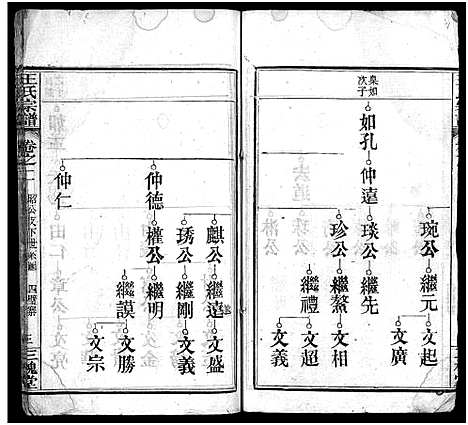 泉如
次子
如孔
仲遠
琬公
繼元
文起
文廣
琰公
繼先
珍公
繼鰲
文相
文超
繼禮
文義
仲德
麒公
繼遠
文盛
琇公
繼剛
文義
權公
繼明
繼謨
文勝
文宗
仲仁
王氏宗譜
卷之二
三槐堂